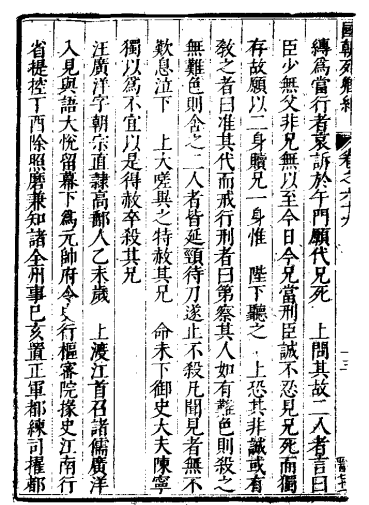 國朝列卿紀
卷之六十九
十三
縛爲當行者哀訴於午門願代兄死　上問其故二人者言曰
臣少無父非兄無以至今日今兄當刑臣誠不忍見兄死而獨
存故願以二身贖兄一身惟　陛下聽之　上恐其非誠或有
敎之者曰准其代而戒行刑者曰第察其人如有難色則殺之
無難色則舍之二人者皆延頸待刀遂止不殺凡聞見者無不
歎息泣下　上大嗟異之特赦其兄　命未下御史大夫陳寧
獨以爲不宜以是得赦卒殺其兄
汪廣洋字朝宗直隸高郵人乙未歲　上渡江首召諸儒廣洋
入見與語大悅留幕下爲元帥府令史行樞密院掾史江南行
省提控丁酉除照磨兼知諸全州事己亥置正軍都練司擢都